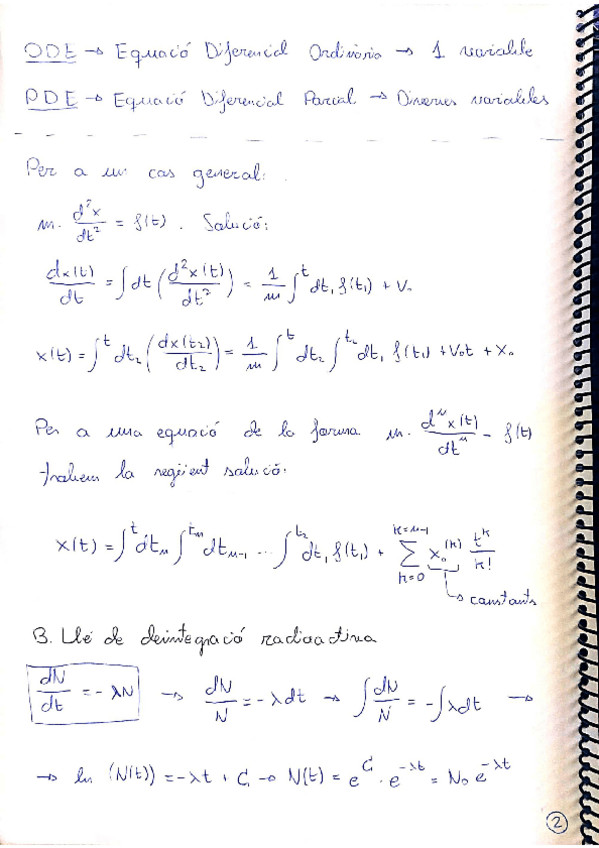 ODE → Equació Diferencial Ordinària → 1 variable
PDE → Equació Diferencial Parcial → Diverses variables
Per a un cas general:
m · d²x/dt² = f(t). Solució:
dx(t)/dt = ∫dt (d²x(t)/dt²) = 1/m ∫^t dt₁ f(t₁) + V₀
x(t) = ∫^t dt₂ (dx(t₂)/dt₂) = 1/m ∫^t dt₂ ∫^t₂ dt₁ f(t₁) + V₀t + X₀
Per a una equació de la forma m · dⁿx(t)/dtⁿ = f(t)
trobem la següent solució:
x(t) = ∫^t dtₙ ∫^tₙ dtₙ₋₁ ... ∫^t₂ dt₁ f(t₁) + ∑_{k=0}^{k=n-1} x₀^(k) t^k/k!
↳ constants
B. Llei de desintegració radioactiva
dN/dt = -λN → dN/N = -λdt → ∫dN/N = -∫λdt →
→ ln (N(t)) = -λt + C₁ → N(t) = e^C₁ · e^-λt = N₀ e^-λt
2